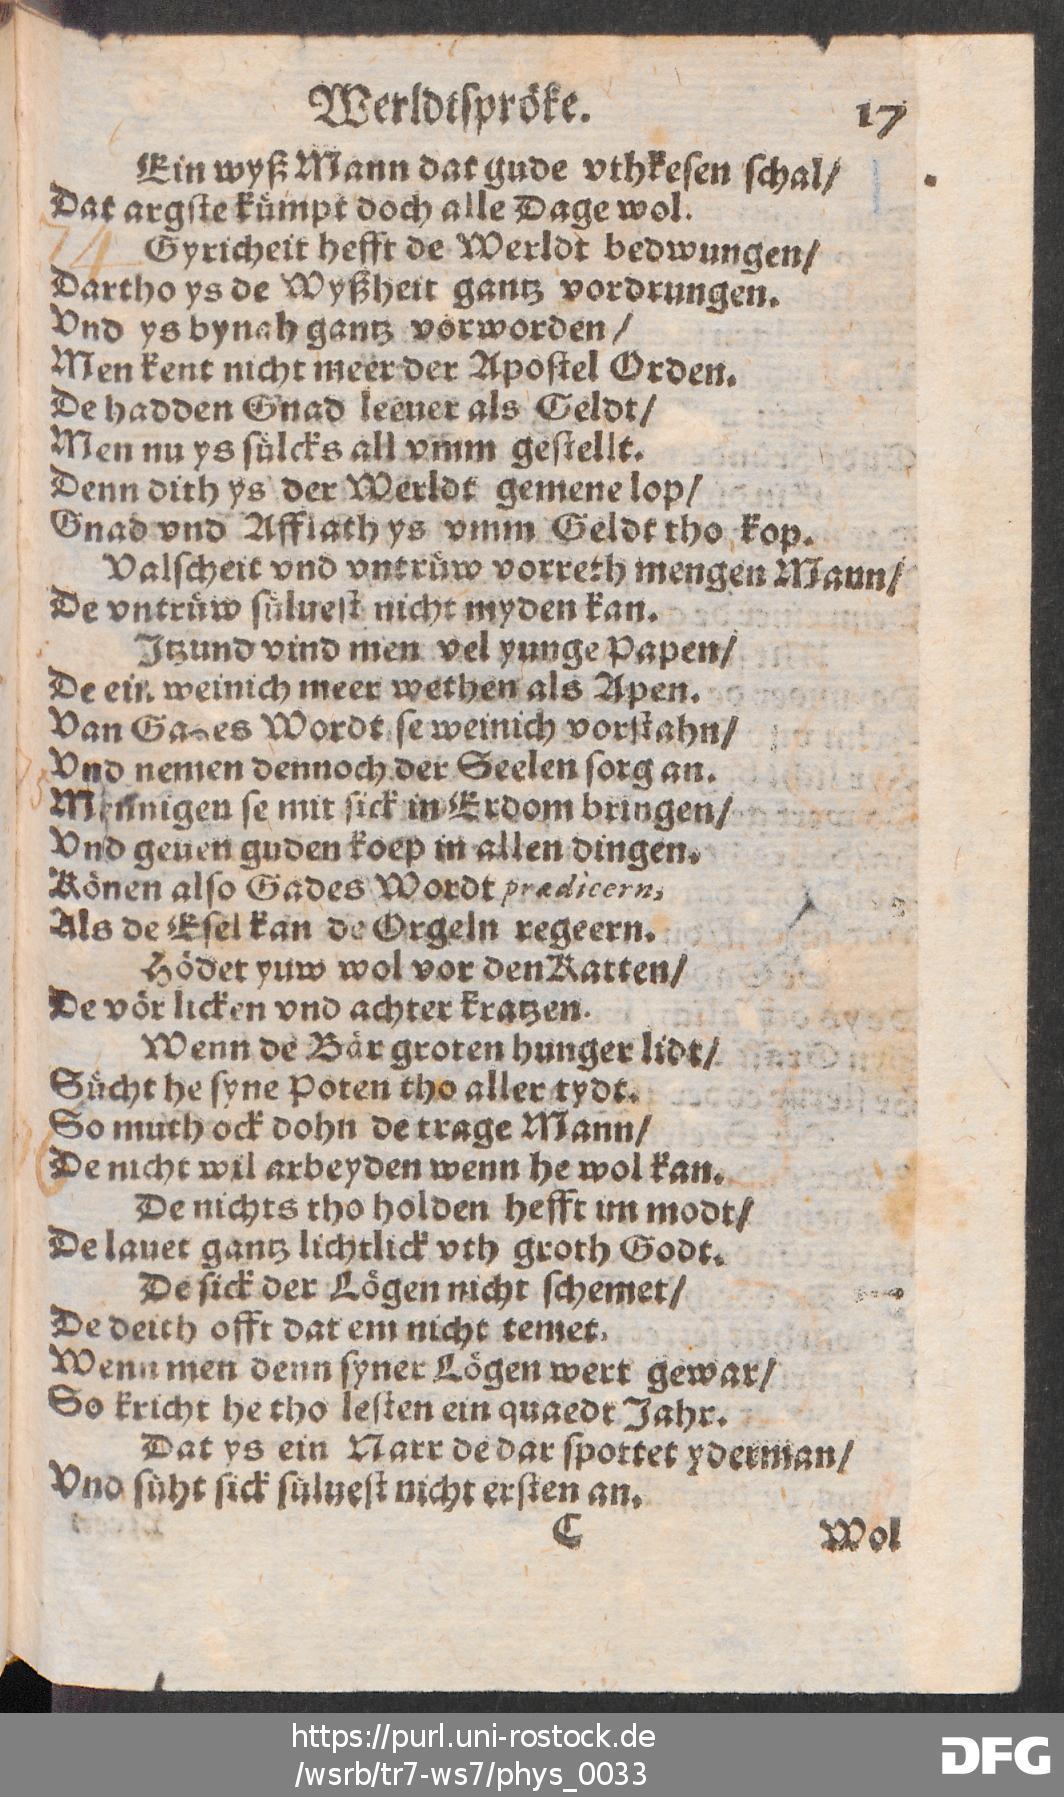 Werldtspröke. 17
Ein wyß Mann dat gude vthkesen schal/
Dat argste kümpt doch alle Dage wol.
74
Gyricheit hefft de Werldt bedwungen/
Dartho ys de Wyßheit gantz vordrungen.
Vnd ys bynah gantz vorworden/
Men kent nicht meer der Apostel Orden.
De hadden Gnad leeuer als Geldt/
Men nu ys sülcks all vmm gestellt.
Denn dith ys der Werldt gemene lop/
Gnad vnd Afflath ys vmm Geldt tho kop.
Valscheit vnd vntrüw vorreth mengen Mann/
De vntrüw süluest nicht myden kan.
Itzund vind men vel yunge Papen/
De ein weinich meer wethen als Apen.
Van Gades Wordt se weinich vorstahn/
Vnd nemen dennoch der Seelen sorg an.
Mennigen se mit sick in Erdom bringen/
Vnd geuen guden koep in allen dingen.
Könen also Gades Wordt prædicern,
Als de Esel kan de Orgeln regeern.
Hödet yuw wol vor den Katten/
De vör licken vnd achter kratzen.
Wenn de Bär groten hunger lidt/
Sücht he syne Poten tho aller tydt.
So muth ock dohn de trage Mann/
De nicht wil arbeyden wenn he wol kan.
De nichts tho holden hefft im modt/
De lauet gantz lichtlick vth groth Godt.
De sick der Lögen nicht schemet/
De deith offt dat em nicht temet.
Wenn men denn syner Lögen wert gewar/
So kricht he tho lesten ein quaedt Jahr.
Dat ys ein Narr de dar spottet yderman/
Vnd süht sick süluest nicht ersten an.
C Wol
https://purl.uni-rostock.de
/wsrb/tr7-ws7/phys_0033
DFG